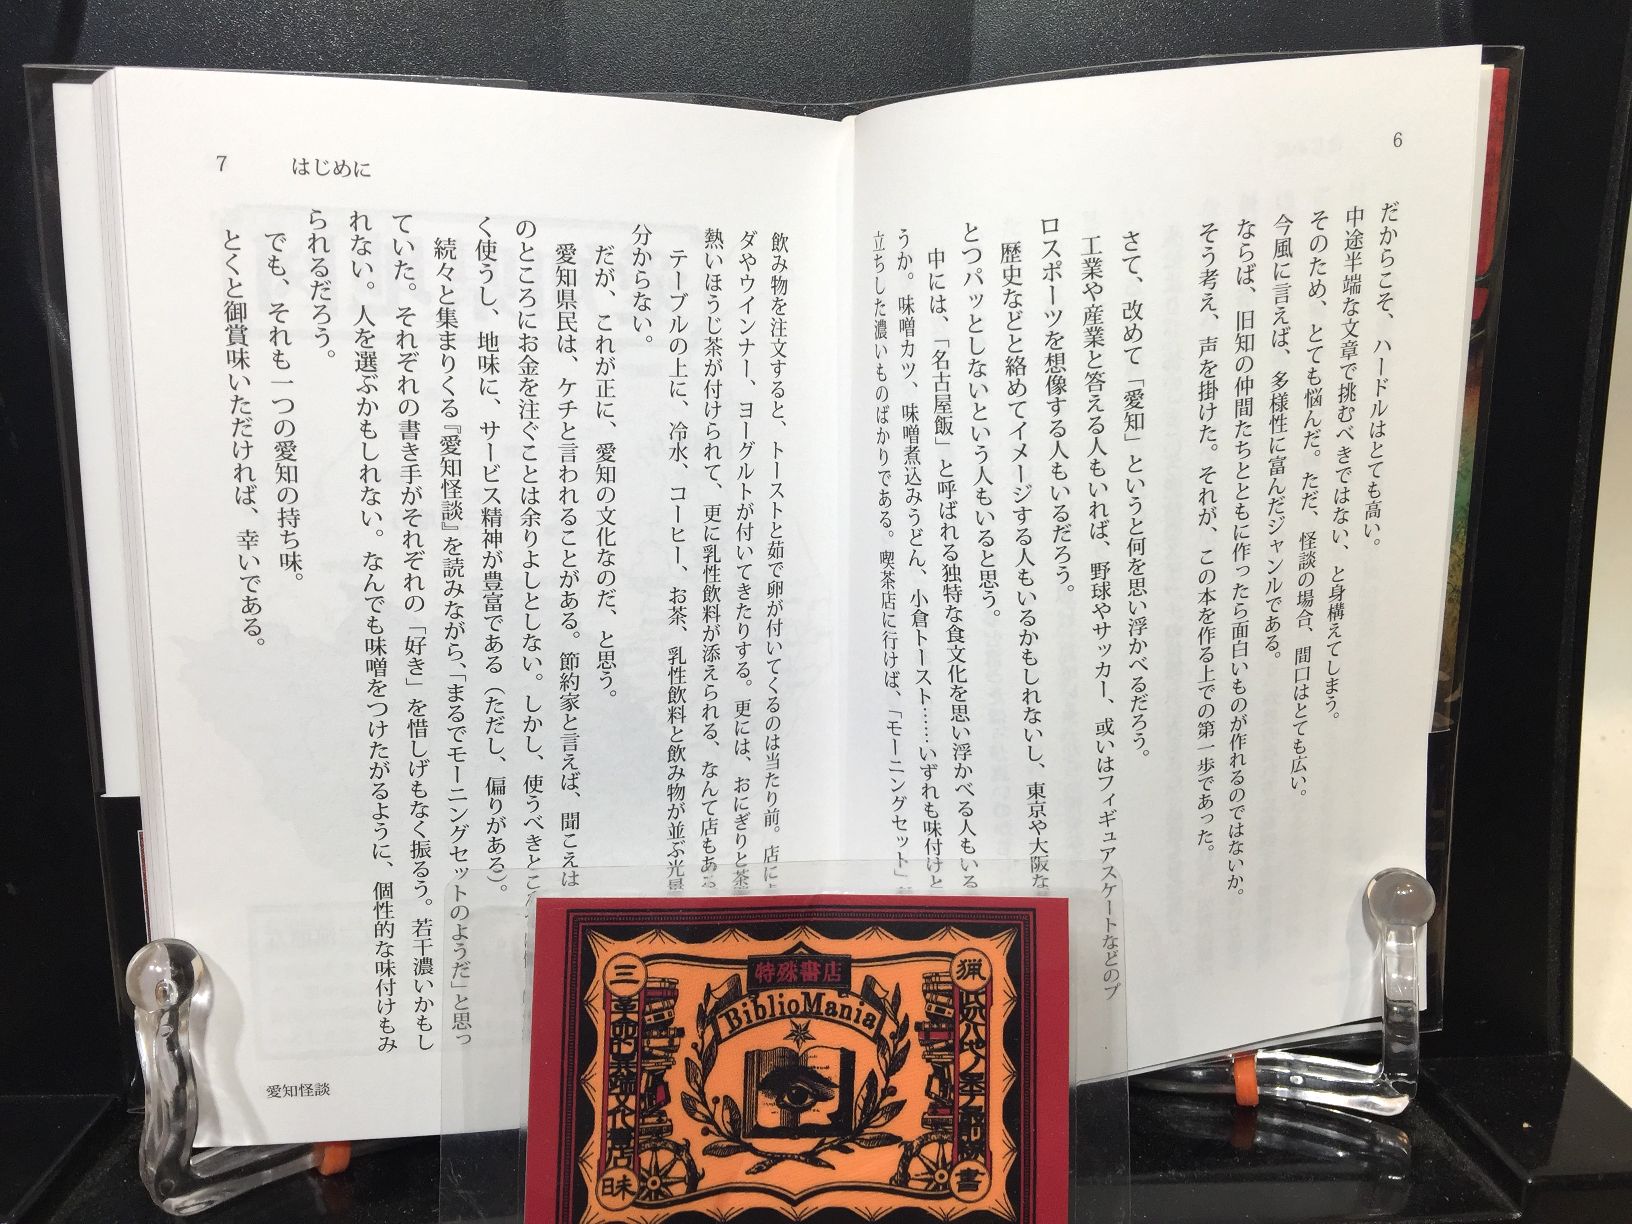 6
だからこそ、ハードルはとても高い。
中途半端な文章で挑むべきではない、と身構えてしまう。
そのため、とても悩んだ。ただ、怪談の場合、間口はとても広い。
今風に言えば、多様性に富んだジャンルである。
ならば、旧知の仲間たちとともに作ったら面白いものが作れるのではないか。
そう考え、声を掛けた。それが、この本を作る上での第一歩であった。
さて、改めて「愛知」というと何を思い浮かべるだろう。
工業や産業と答える人もいれば、野球やサッカー、或いはフィギュアスケートなどのプ
ロスポーツを想像する人もいるだろう。
歴史などと絡めてイメージする人もいるかもしれないし、東京や大阪な
とつパッとしないという人もいると思う。
中には、「名古屋飯」と呼ばれる独特な食文化を思い浮かべる人もいる
うか。味噌カツ、味噌煮込みうどん、小倉トースト……いずれも味付けと
立ちした濃いものばかりである。喫茶店に行けば、「モーニングセット」
7 はじめに
飲み物を注文すると、トーストと茹で卵が付いてくるのは当たり前。店に
ダやウインナー、ヨーグルトが付いてきたりする。更には、おにぎりと茶
熱いほうじ茶が付けられて、更に乳性飲料が添えられる、なんて店もある
テーブルの上に、冷水、コーヒー、お茶、乳性飲料と飲み物が並ぶ光景
分からない。
だが、これが正に、愛知の文化なのだ、と思う。
愛知県民は、ケチと言われることがある。節約家と言えば、聞こえは
のところにお金を注ぐことは余りよしとしない。しかし、使うべきところ
く使うし、地味に、サービス精神が豊富である（ただし、偏りがある）。
続々と集まりくる『愛知怪談』を読みながら、「まるでモーニングセットのようだ」と思っ
ていた。それぞれの書き手がそれぞれの「好き」を惜しげもなく振るう。若干濃いかもし
れない。人を選ぶかもしれない。なんでも味噌をつけたがるように、個性的な味付けもみ
られるだろう。
でも、それも一つの愛知の持ち味。
とくと御賞味いただければ、幸いである。
愛知怪談
特殊書店
BiblioMania
三
猟
昧
書